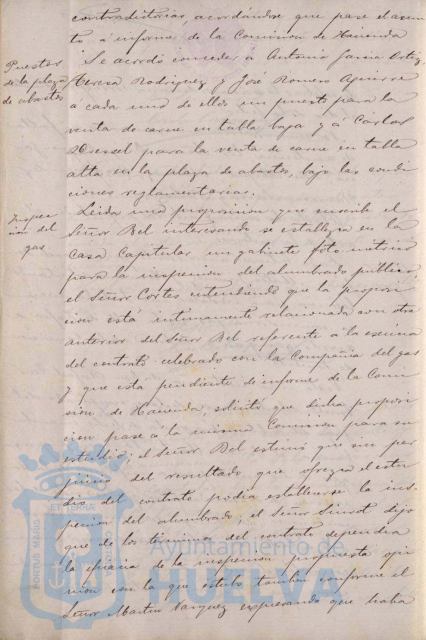 contradictorias, acordándose que pase el asun-
to a informe de la Comision de Hacienda
Puestos
de la plaza
de abastos
Se acordó conceder a Antonio Garcia Ortiz,
Teresa Rodriguez y José Romero Aguirre
a cada uno de ellos un puesto para la
venta de carne en tabla baja y á Carlos
para la venta de carne en tabla
alta en la plaza de abastos, bajo las condi-
ciones reglamentarias.
Inspec-
cion del
gas
Leida una proposicion que suscribe el
Señor Bel interesando se establezca en la
Casa Capitular un gabinete foto metrico
para la inspeccion del alumbrado publico,
el Señor Cortes entendiendo que la proposi-
cion está intimamente relacionada con otra
anterior del Señor Bel referente á la
del contrato celebrado con la Compañia del gas
y que esta pendiente de informe de la Comi-
sion de Hacienda, solicitó que dicha proposi-
cion pase á la misma Comision para su
estudio; el Señor Bel estimó que sin per-
juicio del resultado que ofrezca el estu-
dio del contrato podia establecerse la ins-
peccion del alumbrado; el Señor Sinsot dijo
que de los términos del contrato dependia
la eficacia de la inspeccion propuesta opi-
nion con la que estubo tambien conforme el
Señor Martin Vazquez expresando que habia
PORTUS MARIS
ET TERRÆ
Ayuntamiento de
HUELVA